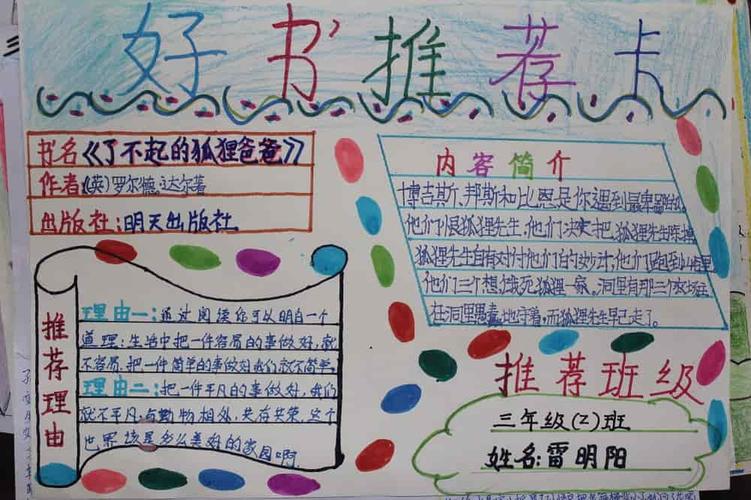 好书推荐卡
书名《了不起的狐狸爸爸》
作者:(英)罗尔德.达尔著
出版社:明天出版社
内容简介
博吉斯、邦斯和比恩是你遇到最卑鄙的
他们恨狐狸先生,他们决定把狐狸先生
狐狸先生自有对付他们的妙计,他们
他们三个想饿死狐狸一家。洞里有那三个
在洞里愚蠢地守着,而狐狸先生早已走了。
推荐理由
理由一:通过阅读你可以明白一个
道理:生活中把一件容易的事做好,就
不容易,把一件简单的事做好我们就不简单。
理由二:把一件平凡的事做好,我们
就不平凡;与动物相处,共存共荣,这个
世界该是多么美好的家园啊。
推荐班级
三年级(2)班
姓名:雷明阳